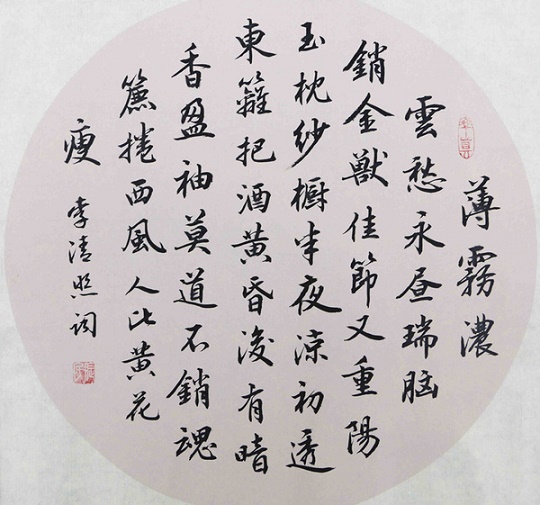 薄霧濃
雲愁永昼瑞脑
銷金獸佳節又重陽
玉枕紗橱半夜涼初透
東籬把酒黄昏後有暗
香盈袖莫道不銷魂
簾捲西風人比黄花
瘦
李清照词